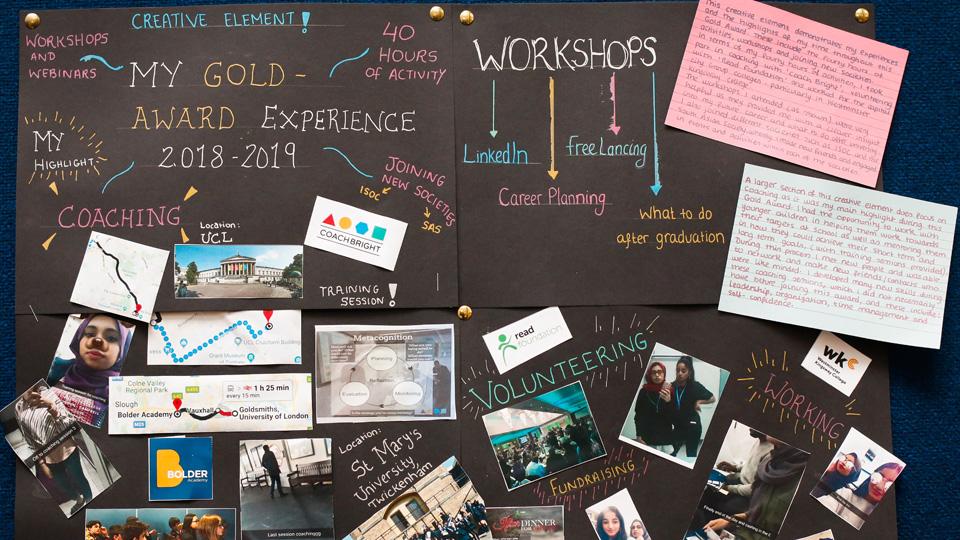 CREATIVE ELEMENT!
WORKSHOPS
AND
WEBINARS
40
HOURS
OF ACTIVITY
MY GOLD-
AWARD EXPERIENCE
2018-2019
MY
HIGHLIGHT
JOINING
NEW SOCIETIES
ISOC
SAS
COACHING
Location:
UCL
COACHBRIGHT
TRAINING
SESSION!
WORKSHOPS
LinkedIn
free Lancing
Career Planning
What to do
after graduation
This creative element demonstrates my experiences
and the highlights of my time throughout this
Gold Award. These include the forty hours of
activities, workshops and joining new societies.
In terms of my forty hours of activities, I took
part in coaching with 'Coach Bright', volunteering
with 'Read Foundation' and worked for the capital
city group colleges
A larger section of this creative element does focus on
coaching as it was my main highlight during this
Gold Award. I had the opportunity to work with
younger children in helping them work towards
their targets at school as well as mentoring them
in how they could achieve their short term and
long term goals, (with training sessions provided)
During this process, I met new people and was able
to network and make new friends/contacts who
were like minded. I developed many new skills during
these coaching sessions, which I did not necessarily
have before joining this award, and these include:
leadership, organisation, time management and
self-confidence.
UCL Cruciform Building
Grant Museum
Colne Valley
Regional Park
Slough
Bolder Academy
Vauxhall
1 h 25 min
every 15 min
Goldsmiths,
University of London
Metacognition
Planning
Evaluation
Monitoring
BOLDER
Academy
Last session coaching
Location:
St Mary's
University,
Twickenham
read
foundation
VOLUNTEERING
FUNDRAISING
DINNER
wkc
Westminster
Kingsway College
WORKING